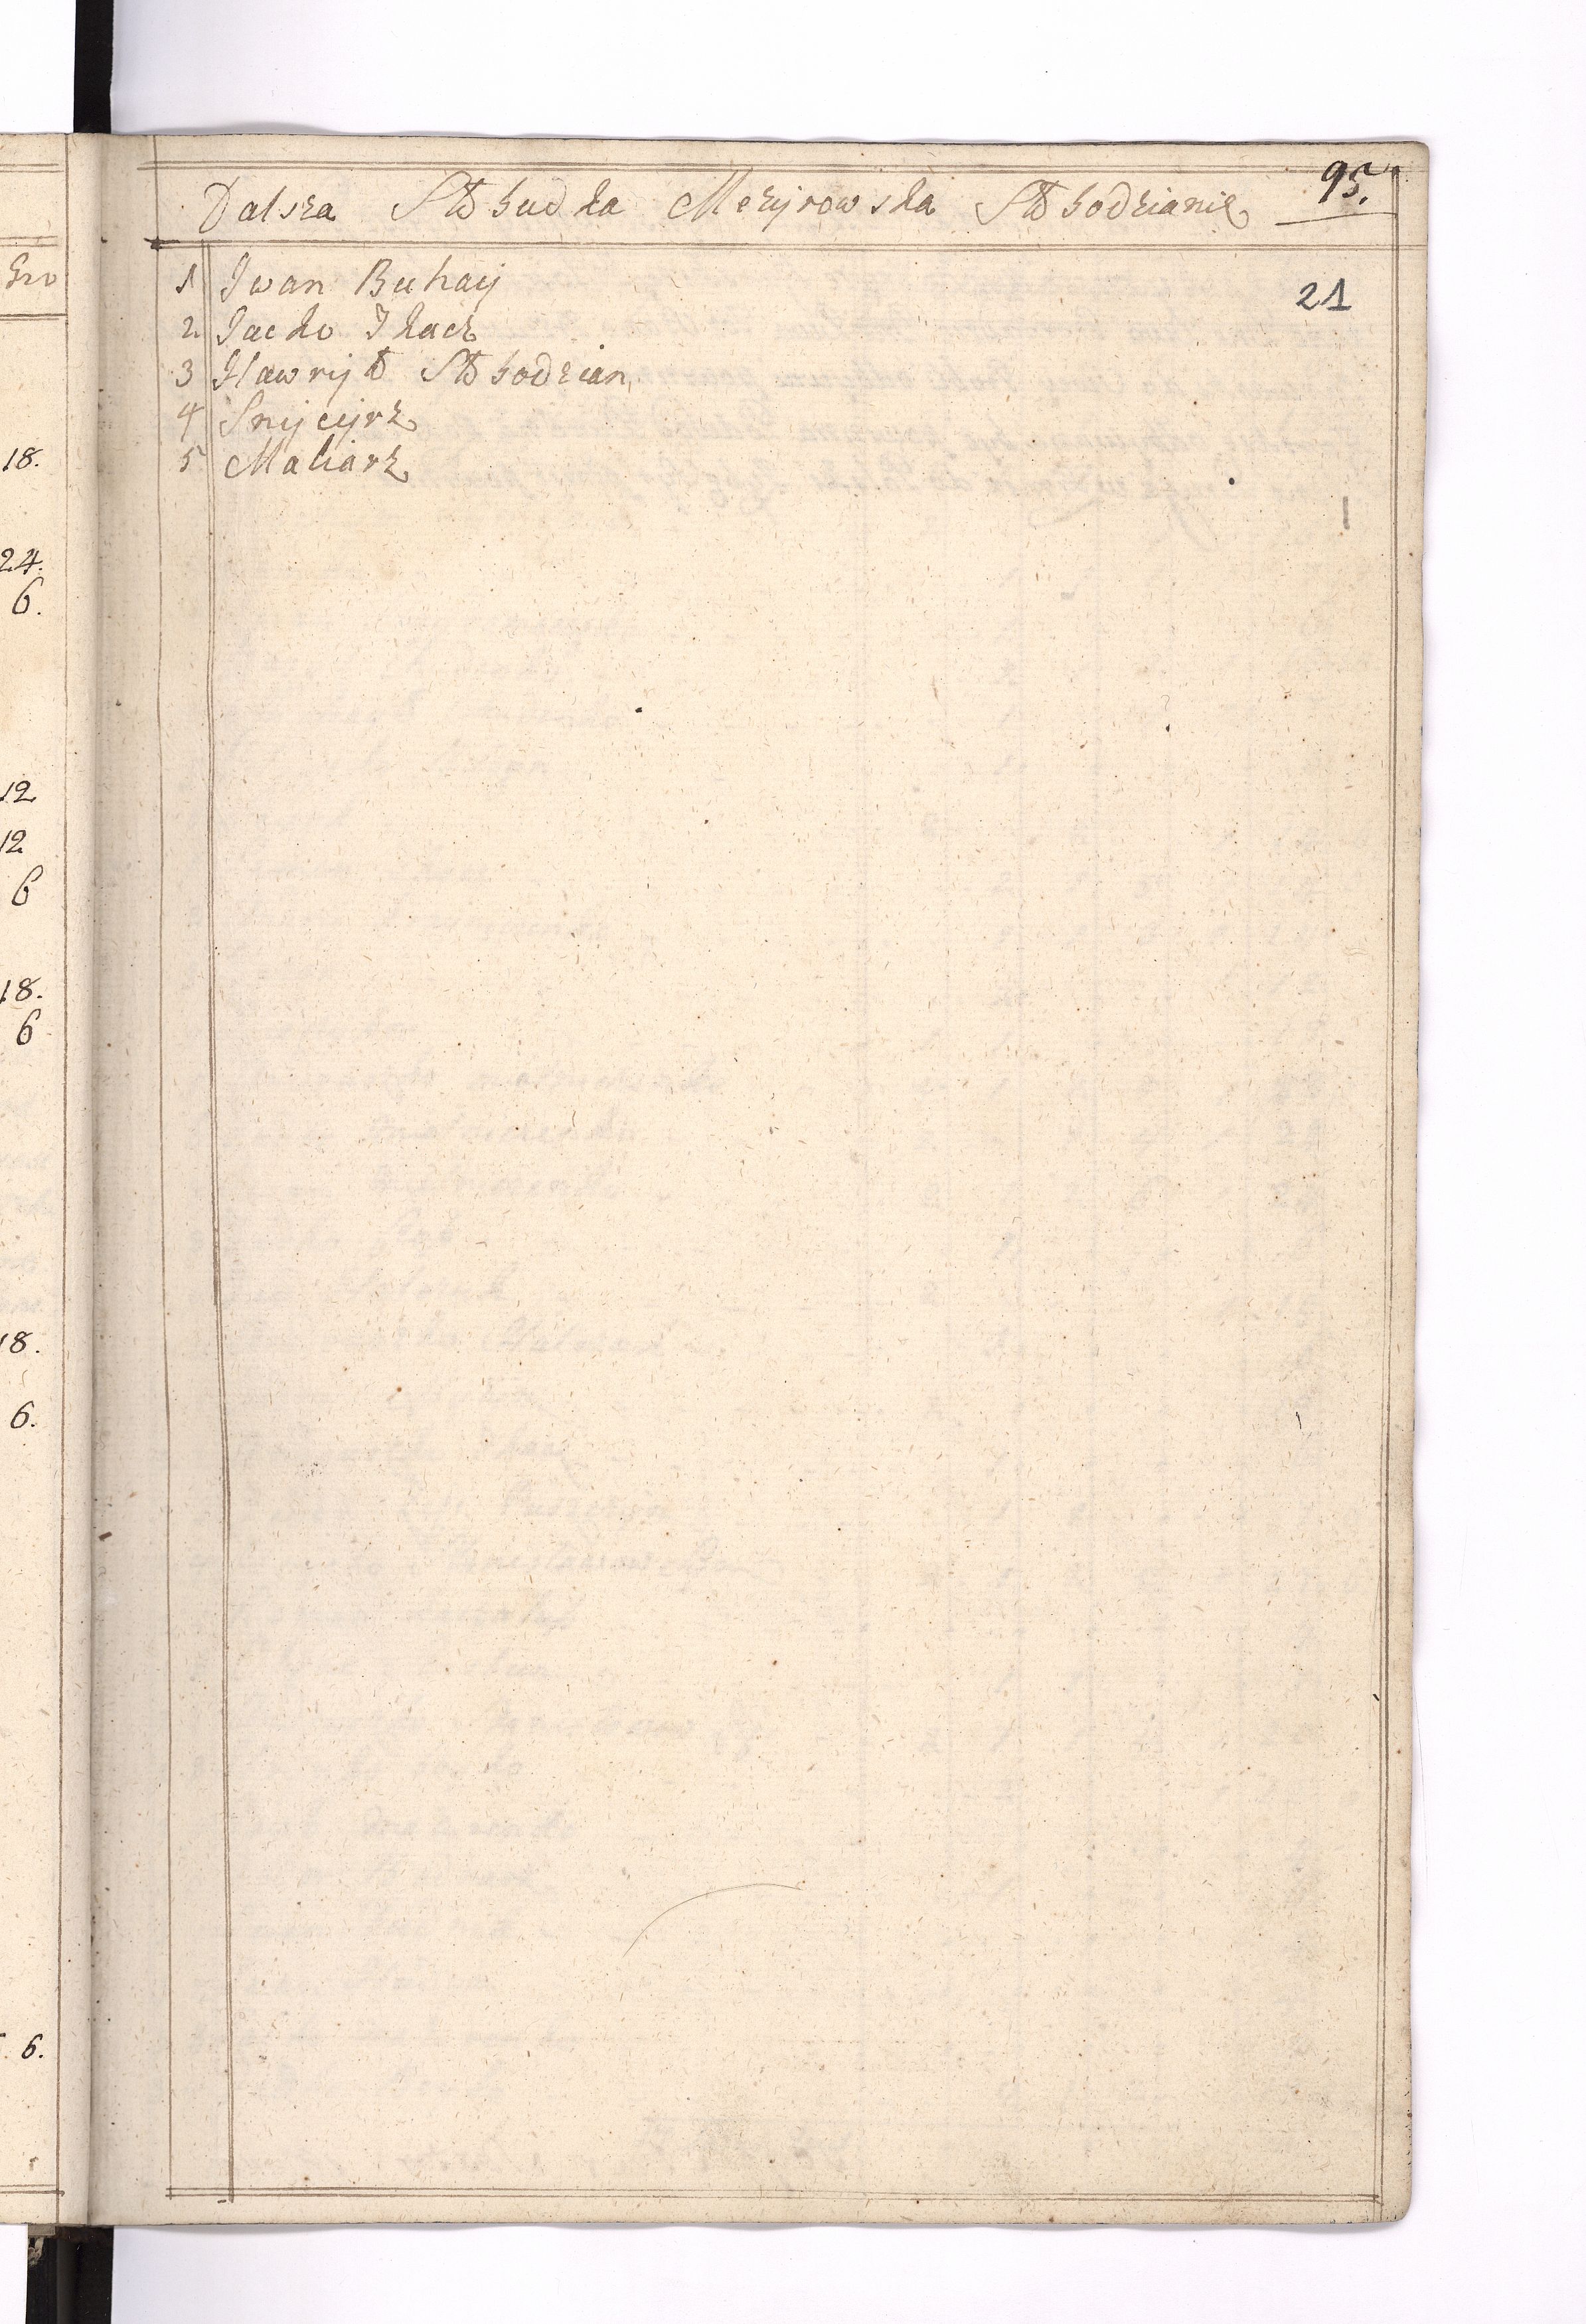 95.
Dalsza Słobudka Mezyrowska Słobodzianie
21
1 Iwan Buhay
2 Iacko Tkacz
3 Hawryło Słobodzian
4 Snycyrz
5 Maliarz
Gro
18.
24.
6.
12
12
6
18.
6
18.
6.
6.